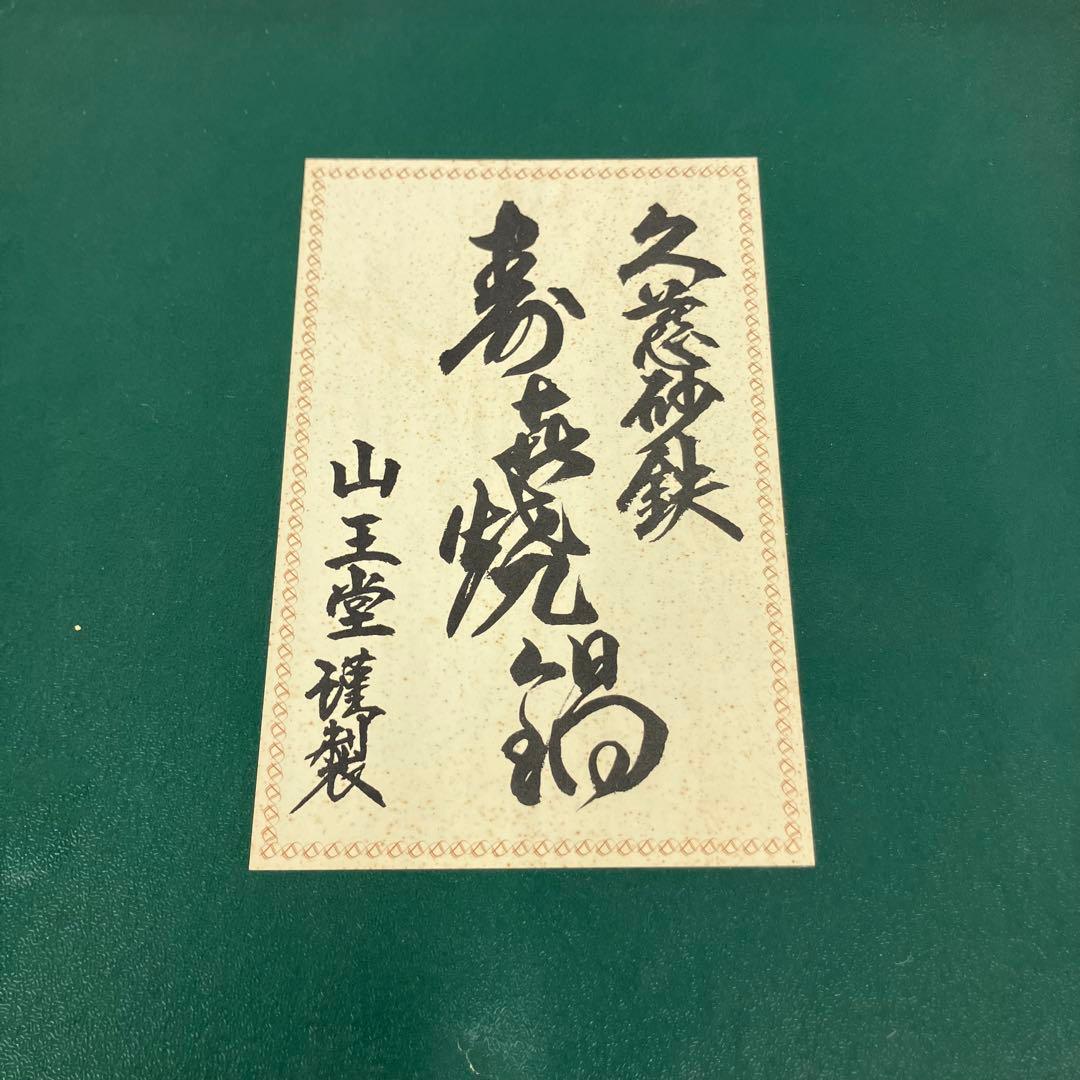 久慈砂鉄
寿喜焼鍋
山王堂謹製